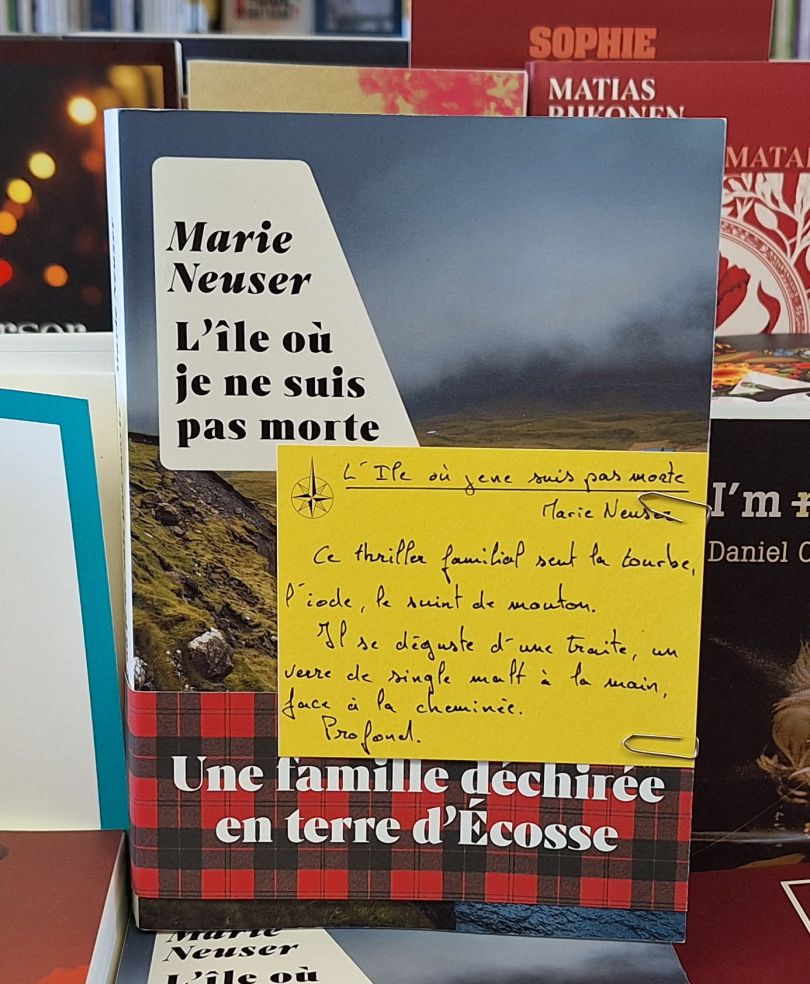 SOPHIE
MATIAS
RIIKONEN
MATA
Marie
Neuser
L'île où
je ne suis
pas morte
L'Ile où je ne suis pas morte
Marie Neuser
Ce thriller familial sent la tourbe,
l'iode, le suint de mouton.
Il se déguste d'une traite, un
verre de single malt à la main,
face à la cheminée.
Profond.
Une famille déchirée
en terre d'Écosse
I'm
Daniel C
erson
Marie
Neuser
L'île où